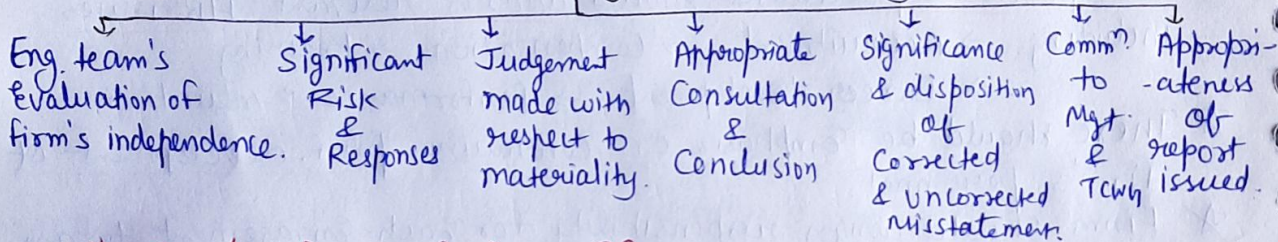 Eng. team's
Evaluation of
firm's independence.
Significant
Risk
&
Responses
Judgement
made with
respect to
materiality.
Appropriate
Consultation
&
Conclusion
Significance
& disposition
of
Corrected
& uncorrected
Misstatement.
Commn.
to
Mgt.
&
TCWG
Appropri-
-ateness
of
report
issued.